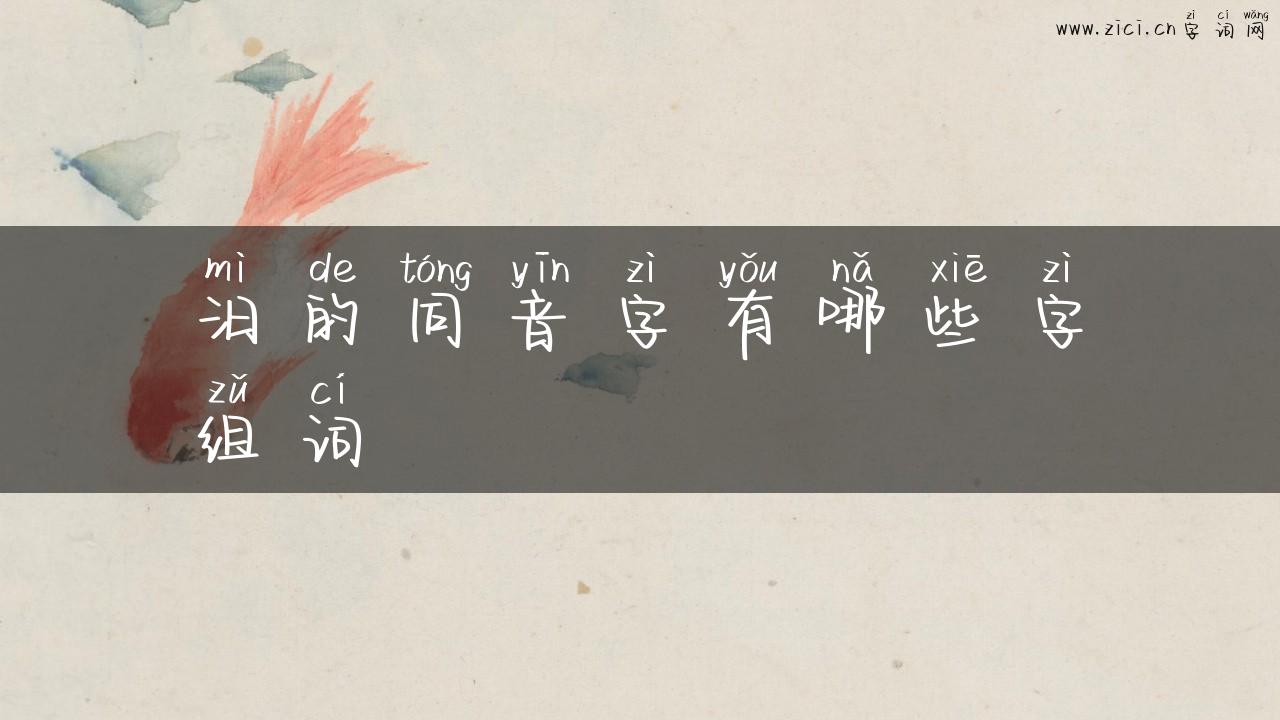 zì cí wǎng
www.zici.cn 字词网
mì de tóng yīn zì yǒu nǎ xiē zì
汨的同音字有哪些字
zǔ cí
组词